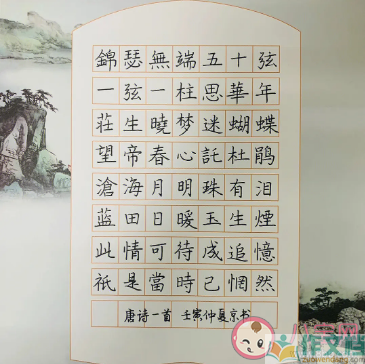 錦瑟無端五十弦
一弦一柱思華年
莊生曉梦迷蝴蝶
望帝春心託杜鹃
滄海月明珠有泪
蓝田日暖玉生煙
此情可待成追憶
祇是當時已惘然
唐诗一首 壬寅仲夏京书
作文档